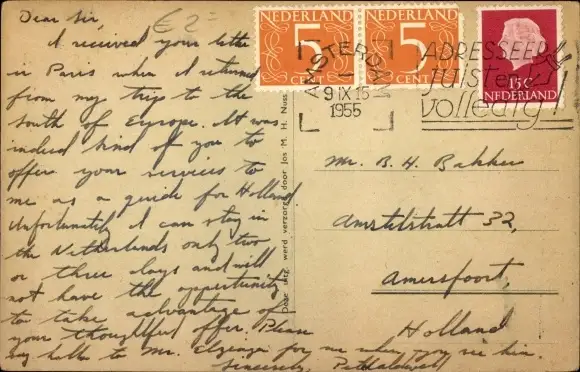 Dear Sir,
€ 2=
I received your letter
in Paris when I returned
from my trips to the
South of Europe. It was
indeed kind of you to
offer your services to
me as a guide for Holland
Unfortunately I can stay in
the Netherlands only two
or three days and will
not have the opportunity
to take advantage of
your thoughtful offer. Please
say hello to Mr. for me when you see him.
Sincerely,
Deze werd verzorgd door Jos M. H. Nus
NEDERLAND
5
CENT
NEDERLAND
5
CENT
NEDERLAND
15 C
AMSTERDAM
9 IX 15
1955
ADRESSEER
juist en
volledig!
Mr. B. H. Bakker
Amstelstratt 32,
Amersfoort,
Holland